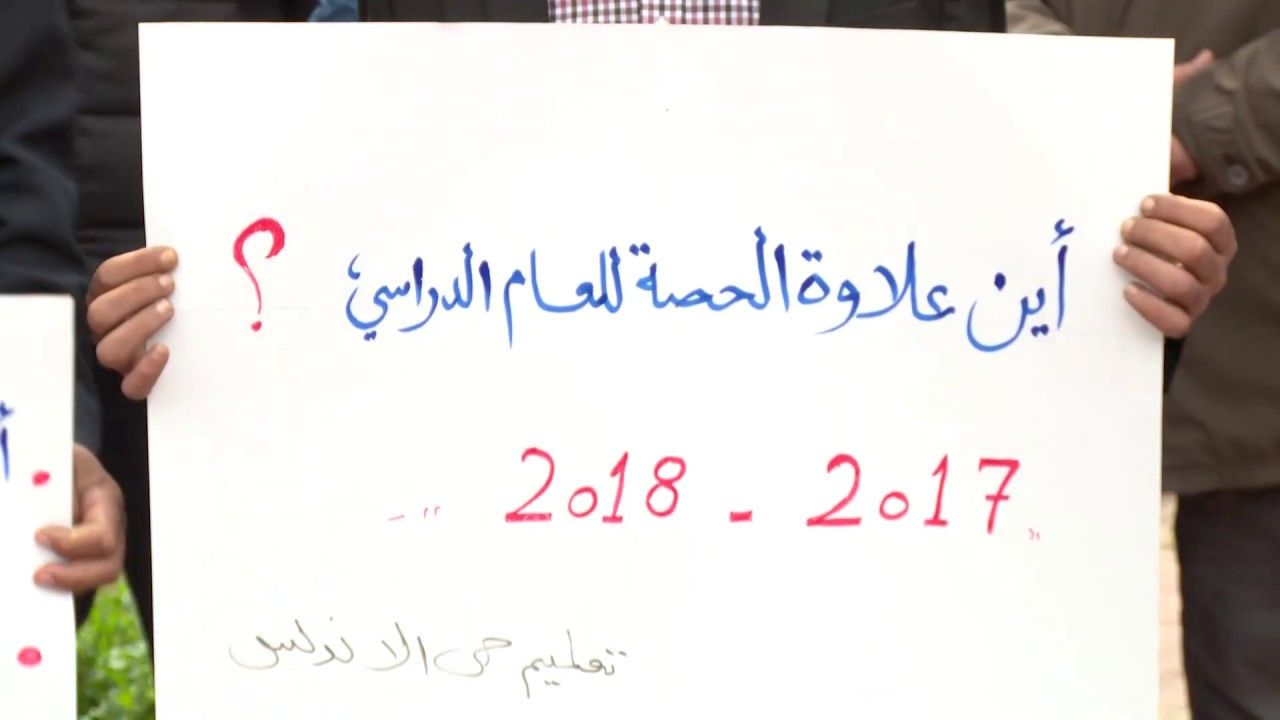 أين علاوة الحصة للعام الدراسي ؟
2017 - 2018
تعليم حي الاندلس
أ